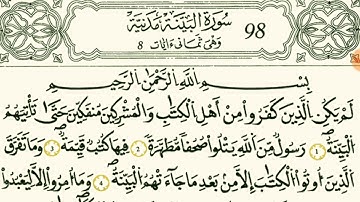 سُورَةُ البَيِّنَةِ مَدَنِيَّة 98
وَهِيَ ثَمَانِي ءَايَات 8
بِسْمِ اللَّهِ الرَّحْمَٰنِ الرَّحِيمِ
لَمْ يَكُنِ الَّذِينَ كَفَرُوا مِنْ أَهْلِ الْكِتَابِ وَالْمُشْرِكِينَ مُنفَكِّينَ حَتَّىٰ تَأْتِيَهُمُ
الْبَيِّنَةُ 1 رَسُولٌ مِّنَ اللَّهِ يَتْلُوا صُحُفًا مُّطَهَّرَةً 2 فِيهَا كُتُبٌ قَيِّمَةٌ 3 وَمَا تَفَرَّقَ
الَّذِينَ أُوتُوا الْكِتَابَ إِلَّا مِنْ بَعْدِ مَا جَاءَتْهُمُ الْبَيِّنَةُ 4 وَمَا أُمِرُوا إِلَّا لِيَعْبُدُوا